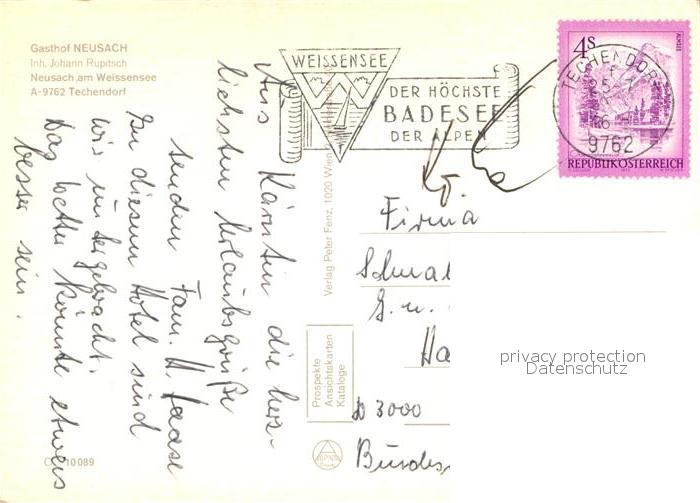 Gasthof NEUSACH
Inh. Johann Rupitsch
Neusach am Weissensee
A-9762 Techendorf
WEISSENSEE
DER HÖCHSTE
BADESEE
DER ALPEN
4S
ALMSEE
TECHENDORF
9762
REPUBLIK ÖSTERREICH
Aus Kärnten die herz-
lichsten Urlaubsgrüße
senden Fam. H. Haase
In diesem Hotel sind
wir untergebracht.
Das Wetter könnte etwas
besser sein.
Verlag Peter Fenz, 1020 Wien
Prospekte
Ansichtskarten
Kataloge
10089
Firma
Schmal
G.m.
Ha
D 3000
Bundes
privacy protection
Datenschutz